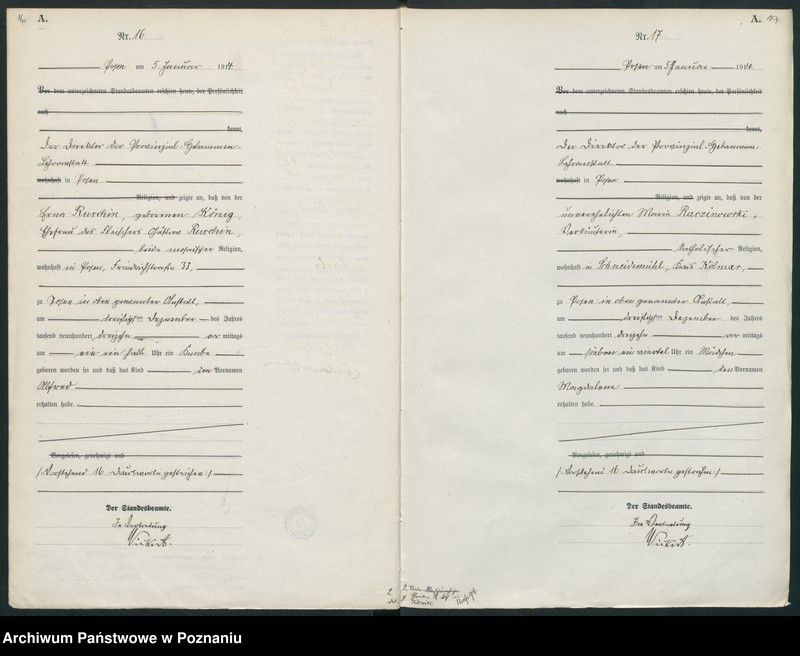 A.
Nr. 16
Posen am 5. Januar 1914
Vor dem unterzeichneten Standesbeamten erschien heute, der Persönlichkeit
nach
kannt,
Der Direktor der Provinzial-Hebammen-
Lehranstalt
wohnhaft in Posen
Religion, und zeigte an, daß von der
Erna Ruschin, geborenen König,
Ehefrau des Fleischers Gustav Ruschin,
beide mosaischer Religion,
wohnhaft in Posen, Friedrichstraße 33,
zu Posen in oben genannter Anstalt,
am dreißigsten Dezember des Jahres
tausend neunhundert dreizehn vor mittags
um ein ein halb Uhr ein Knabe
geboren worden sei und daß das Kind den Vornamen
Alfred
erhalten habe.
Vorgelesen, genehmigt und
(Vorstehend 16 Druckworte gestrichen)
Der Standesbeamte.
In Vertretung
A. 17
Nr. 17
Posen am 5. Januar 1914
Vor dem unterzeichneten Standesbeamten erschien heute, der Persönlichkeit
nach
kannt,
Der Direktor der Provinzial-Hebammen-
Lehranstalt
wohnhaft in Posen
Religion, und zeigte an, daß von der
unverehelichten Maria Raczinowski,
Verkäuferin,
katholischer Religion,
wohnhaft in Schneidemühl, Kreis Kolmar,
zu Posen in oben genannter Anstalt,
am dreißigsten Dezember des Jahres
tausend neunhundert dreizehn vor mittags
um sieben ein viertel Uhr ein Mädchen
geboren worden sei und daß das Kind den Vornamen
Magdalena
erhalten habe.
Vorgelesen, genehmigt und
(Vorstehend 16 Druckworte gestrichen)
Der Standesbeamte.
In Vertretung
Archiwum Państwowe w Poznaniu